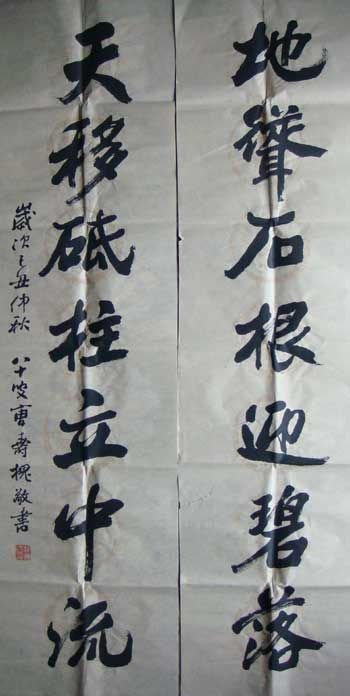 地聳石根迎碧落
天移砥柱立中流
歲次乙丑仲秋 八十叟曹壽槐敬書